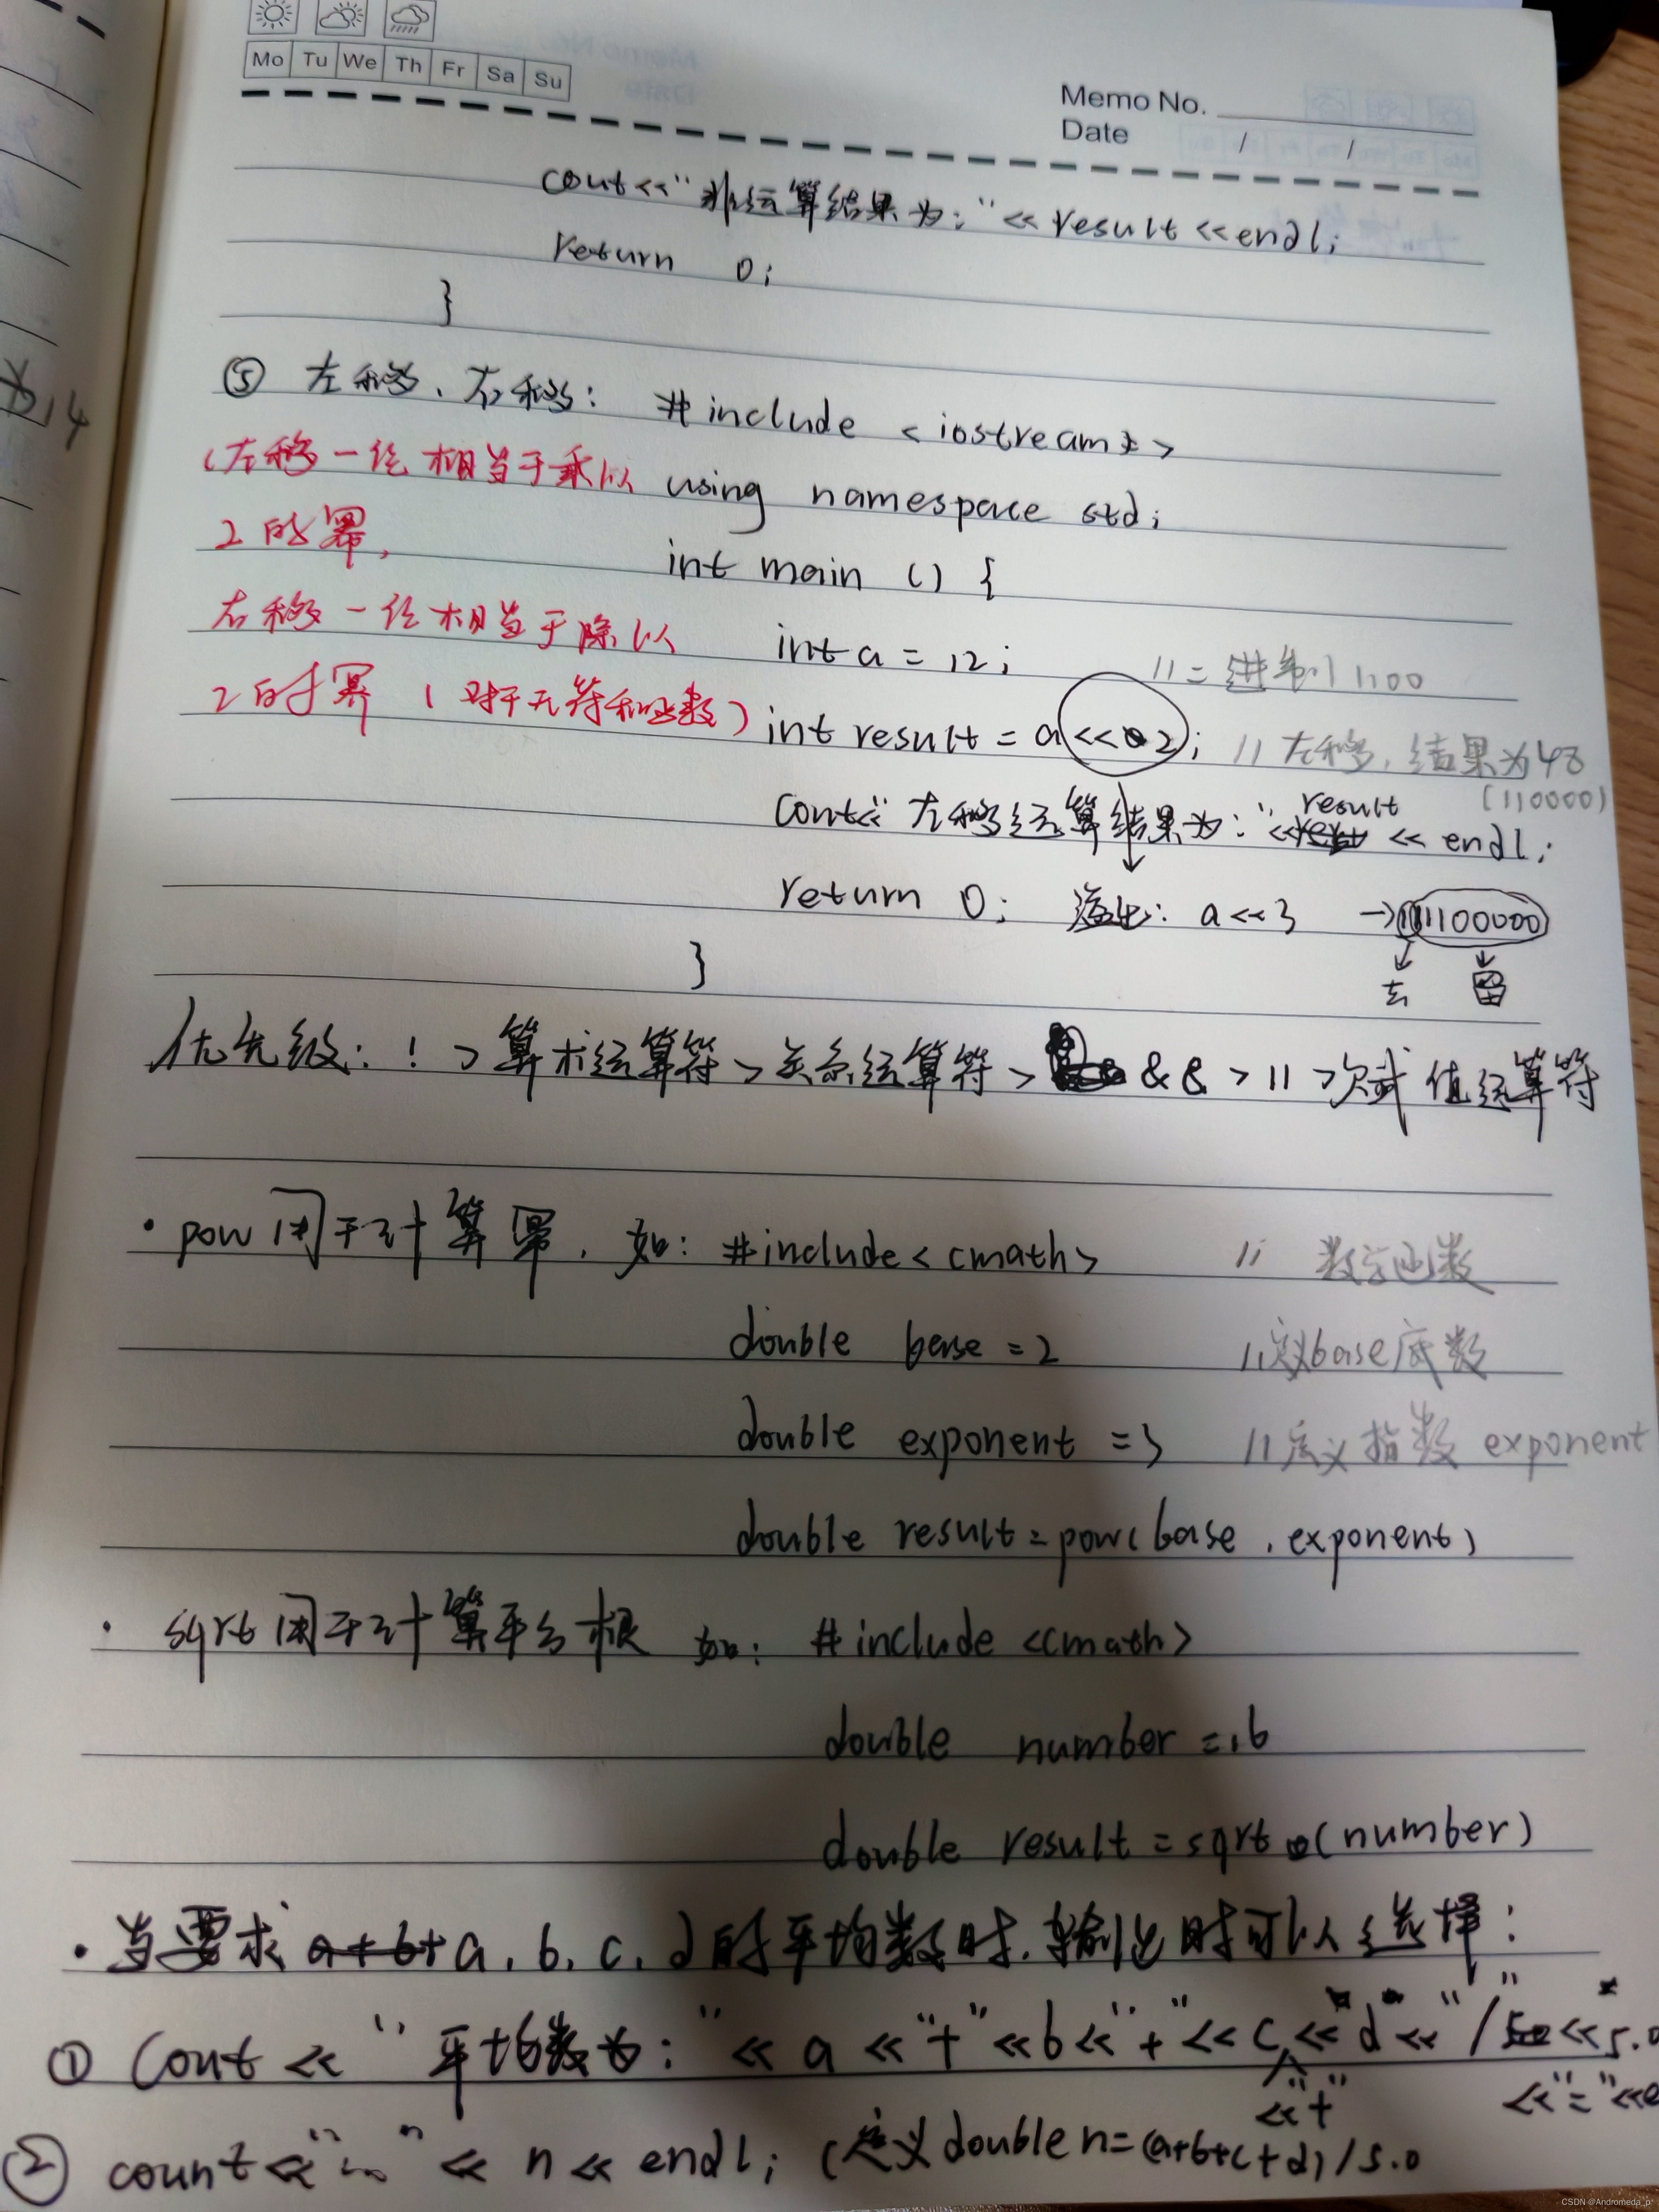 Mo Tu We Th Fr Sa Su
Memo No.
Date / /
cout<<"非运算结果为:"<<result<<endl;
return 0;
}
⑤ 左移、右移: #include <iostream>
(左移一位相当于乘以 using namespace std;
2的幂, int main () {
右移一位相当于除以 int a = 12; //二进制1100
2的幂(对于无符和函数) int result = a<<2; //左移,结果为48
(110000)
cout<<"左移运算结果为:"<<result<<endl;
return 0; 溢出: a<<3 →1100000
去 留
}
优先级: ! >算术运算符>关系运算符> && > || >赋值运算符
·pow用于计算幂,如: #include<cmath> // 数学函数
double base =2 //定义base底数
double exponent =3 //定义指数 exponent
double result=pow(base,exponent)
· sqrt用于计算平方根 如: #include <cmath>
double number =16
double result =sqrt(number)
·当要求 a, b, c, d的平均数时,输出时可以选择:
① Cout << "平均数为:" << a << "+" <<b<< "+" << c << d << "/ << 5.0
<<"+" <<"="<<e
② count <<"..." << n << endl; (定义 double n=(a+b+c+d)/5.0
CSDN @Andromeda_p